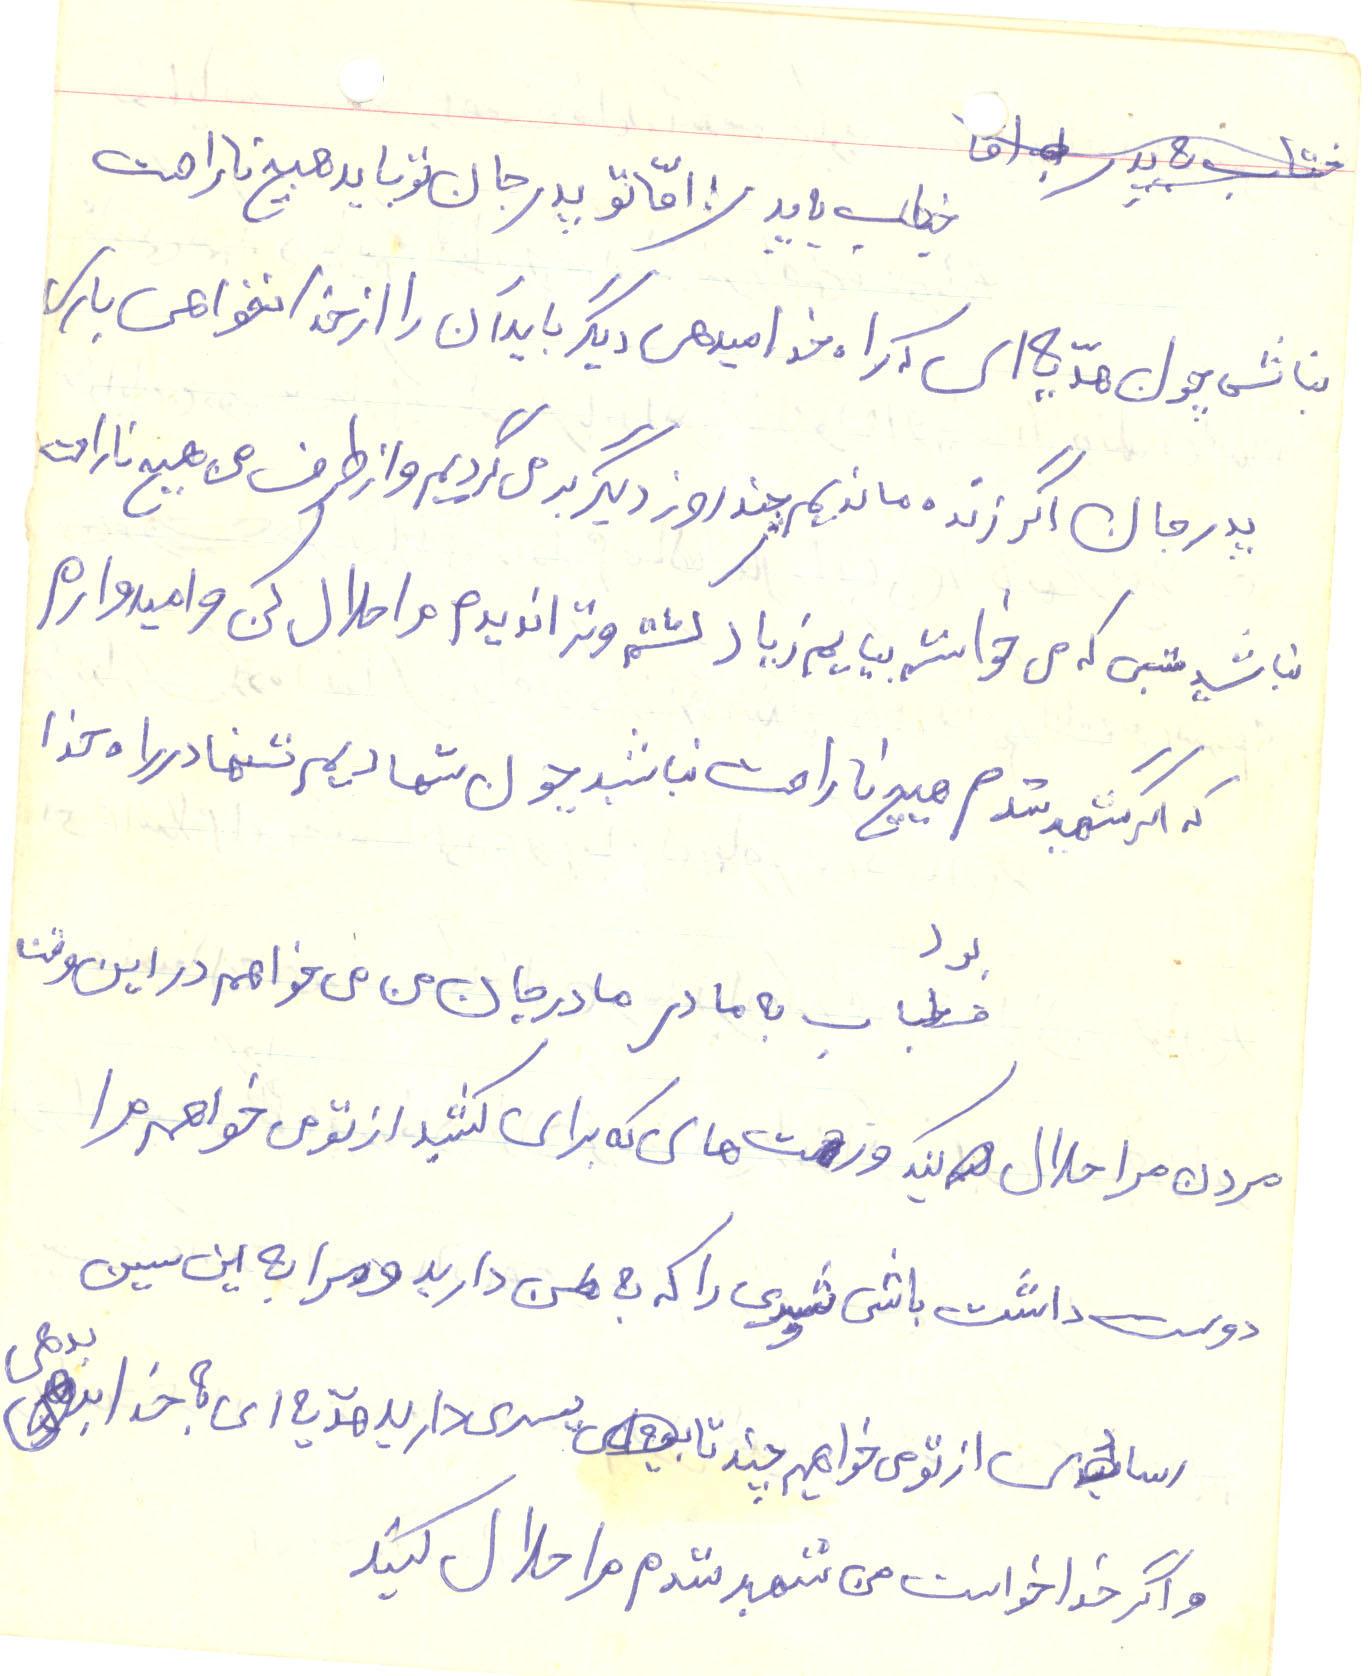 خطاب به پدر اما
خطاب به پدر : امّا تو پدر جان تو باید هیچ ناراحت
نباشی چون هدّیه ای که راه خدا میدهی دیگر باید آن را از خدا نخواهی
پدر جان اگر زنده ماندیم چند روز دیگر بر می گردیم و از طرف من هیچ ناراحت
نباشید شبی که می خواستم بیایم زیاد گشتم و ترا ندیدم مرا حلال کن و امیدوارم
که اگر شهید شدم هیچ ناراحت نباشید چون شهادتم تنها در راه خدا
بود
خطاب به مادر مادر جان من می خواهم در این وقت
مردن مرا حلال کنید و زحمت های که برای کشید از تو می خواهم مرا
دوست داشت باشی شیری را که به من دارید و مرا به این سین
رساندی از تو می خواهم چند تا پسری دارید هدّیه ای به خدا بدهی
و اگر خدا خواست من شهید شدم مرا حلال کنید